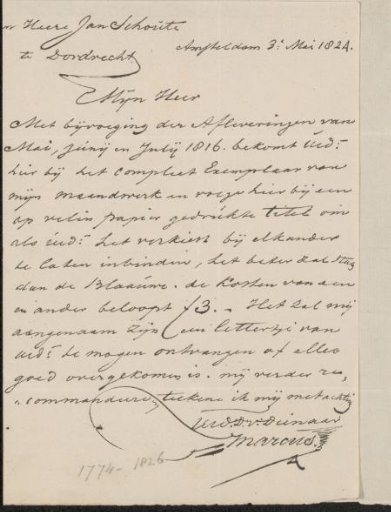 Heere Jan Schoute
Amsteldam 3: Mei 1824.
te Dordrecht
Mijn Heer
Met bijvoeging der Afleveringen van
Mei, Junij en Julij 1816. bekomt Ued:
hier bij het compleet Exemplaar van
mijn maandwerk en voege hier bij een
op velin papier gedrukte titel om
als Ued: het verkiest bij elkander
te laten inbinden, het beter zal
dan de Blaauwe. de kosten van een
en ander beloopt ƒ3.- Het zal mij
aangenaam zijn een lettertje van
Ued: te mogen ontvangen of alles
goed overgekomen is. mij verder re,
commandere, tekene ik mij met achting
UEd. Dw Dienaar
Marcus
1774-1826